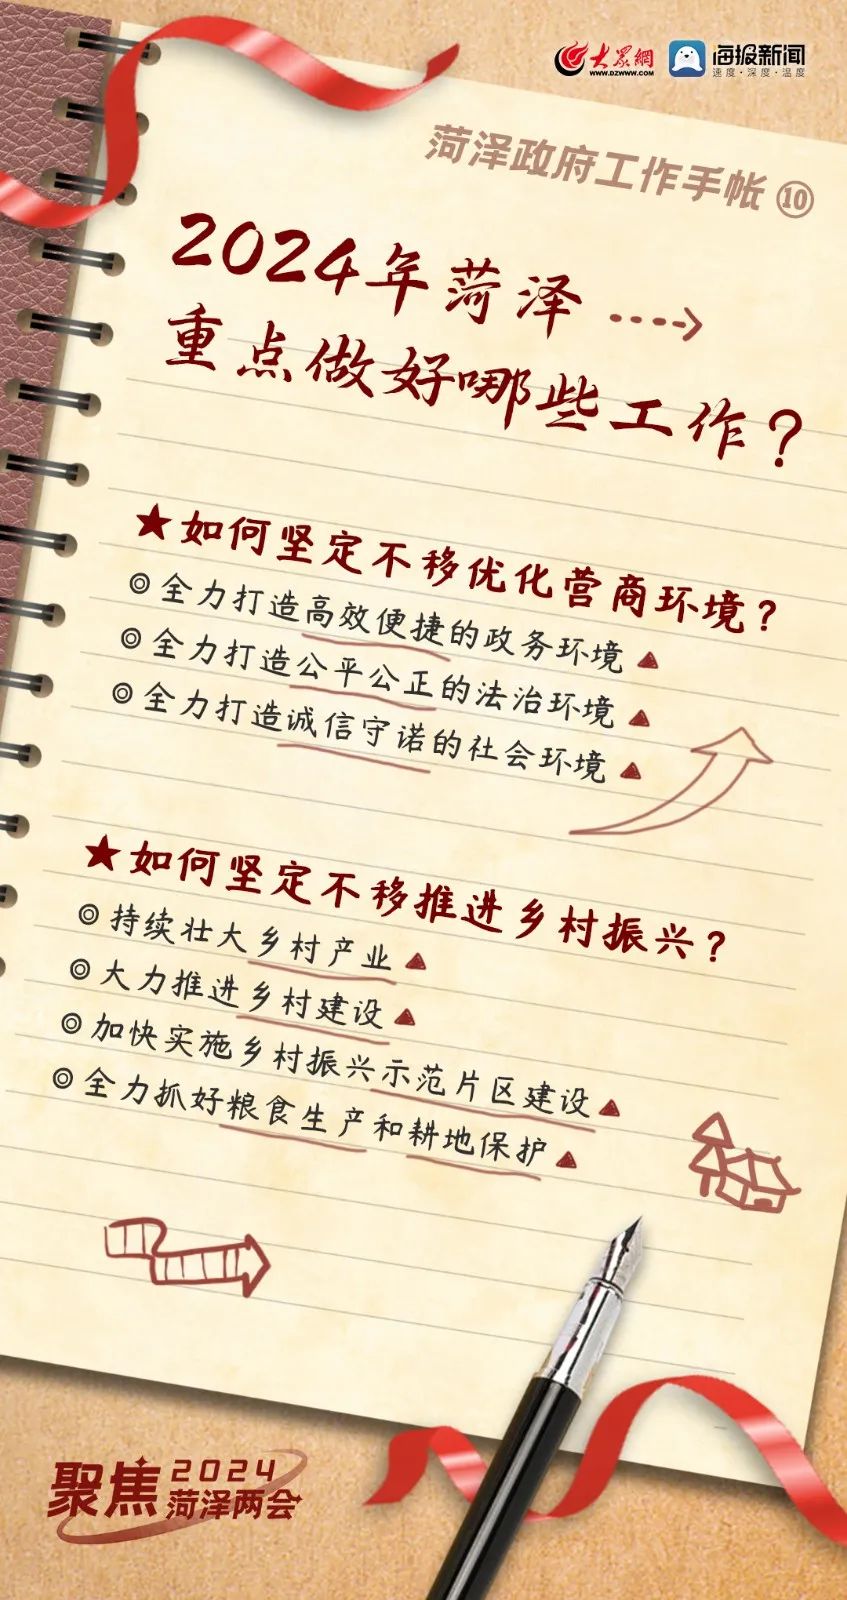 大眾網
WWW.DZWWW.COM
海报新闻
速度·深度·温度
菏泽政府工作手帐⑩
2024年菏泽
重点做好哪些工作？
★如何坚定不移优化营商环境？
◎全力打造高效便捷的政务环境▲
◎全力打造公平公正的法治环境▲
◎全力打造诚信守诺的社会环境▲
★如何坚定不移推进乡村振兴？
◎持续壮大乡村产业▲
◎大力推进乡村建设▲
◎加快实施乡村振兴示范片区建设▲
◎全力抓好粮食生产和耕地保护▲
聚焦2024
菏泽两会